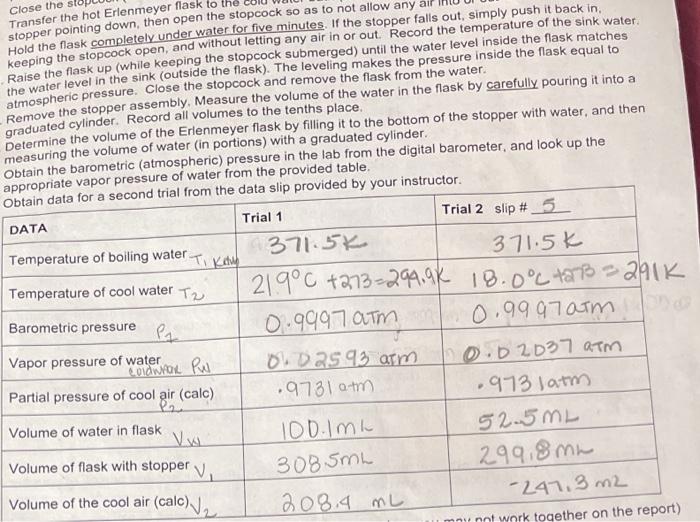 Close the
Transfer the hot Erlenmeyer flask to the cold
stopper pointing down, then open the stopcock so as to not allow any air into or
Hold the flask completely under water for five minutes. If the stopper falls out, simply push it back in,
keeping the stopcock open, and without letting any air in or out. Record the temperature of the sink water.
Raise the flask up (while keeping the stopcock submerged) until the water level inside the flask matches
the water level in the sink (outside the flask). The leveling makes the pressure inside the flask equal to
atmospheric pressure. Close the stopcock and remove the flask from the water.
Remove the stopper assembly. Measure the volume of the water in the flask by carefully pouring it into a
graduated cylinder. Record all volumes to the tenths place.
Determine the volume of the Erlenmeyer flask by filling it to the bottom of the stopper with water, and then
measuring the volume of water (in portions) with a graduated cylinder.
Obtain the barometric (atmospheric) pressure in the lab from the digital barometer, and look up the
appropriate vapor pressure of water from the provided table.
Obtain data for a second trial from the data slip provided by your instructor.
DATA Trial 1 Trial 2 slip # 5
Temperature of boiling water T1 371.5K 371.5K
Temperature of cool water T2 21.9°C +273=294.9K 18.0°C +273=291K
Barometric pressure 0.9997 atm 0.9997 atm
Vapor pressure of water Pw 0.02593 atm 0.02037 atm
Partial pressure of cool air (calc) P2 .9731 atm .9731 atm
Volume of water in flask Vw 100.1mL 52.5mL
Volume of flask with stopper V1 308.5mL 299.8mL
Volume of the cool air (calc) V2 208.4 mL -247.3 mL
may not work together on the report)